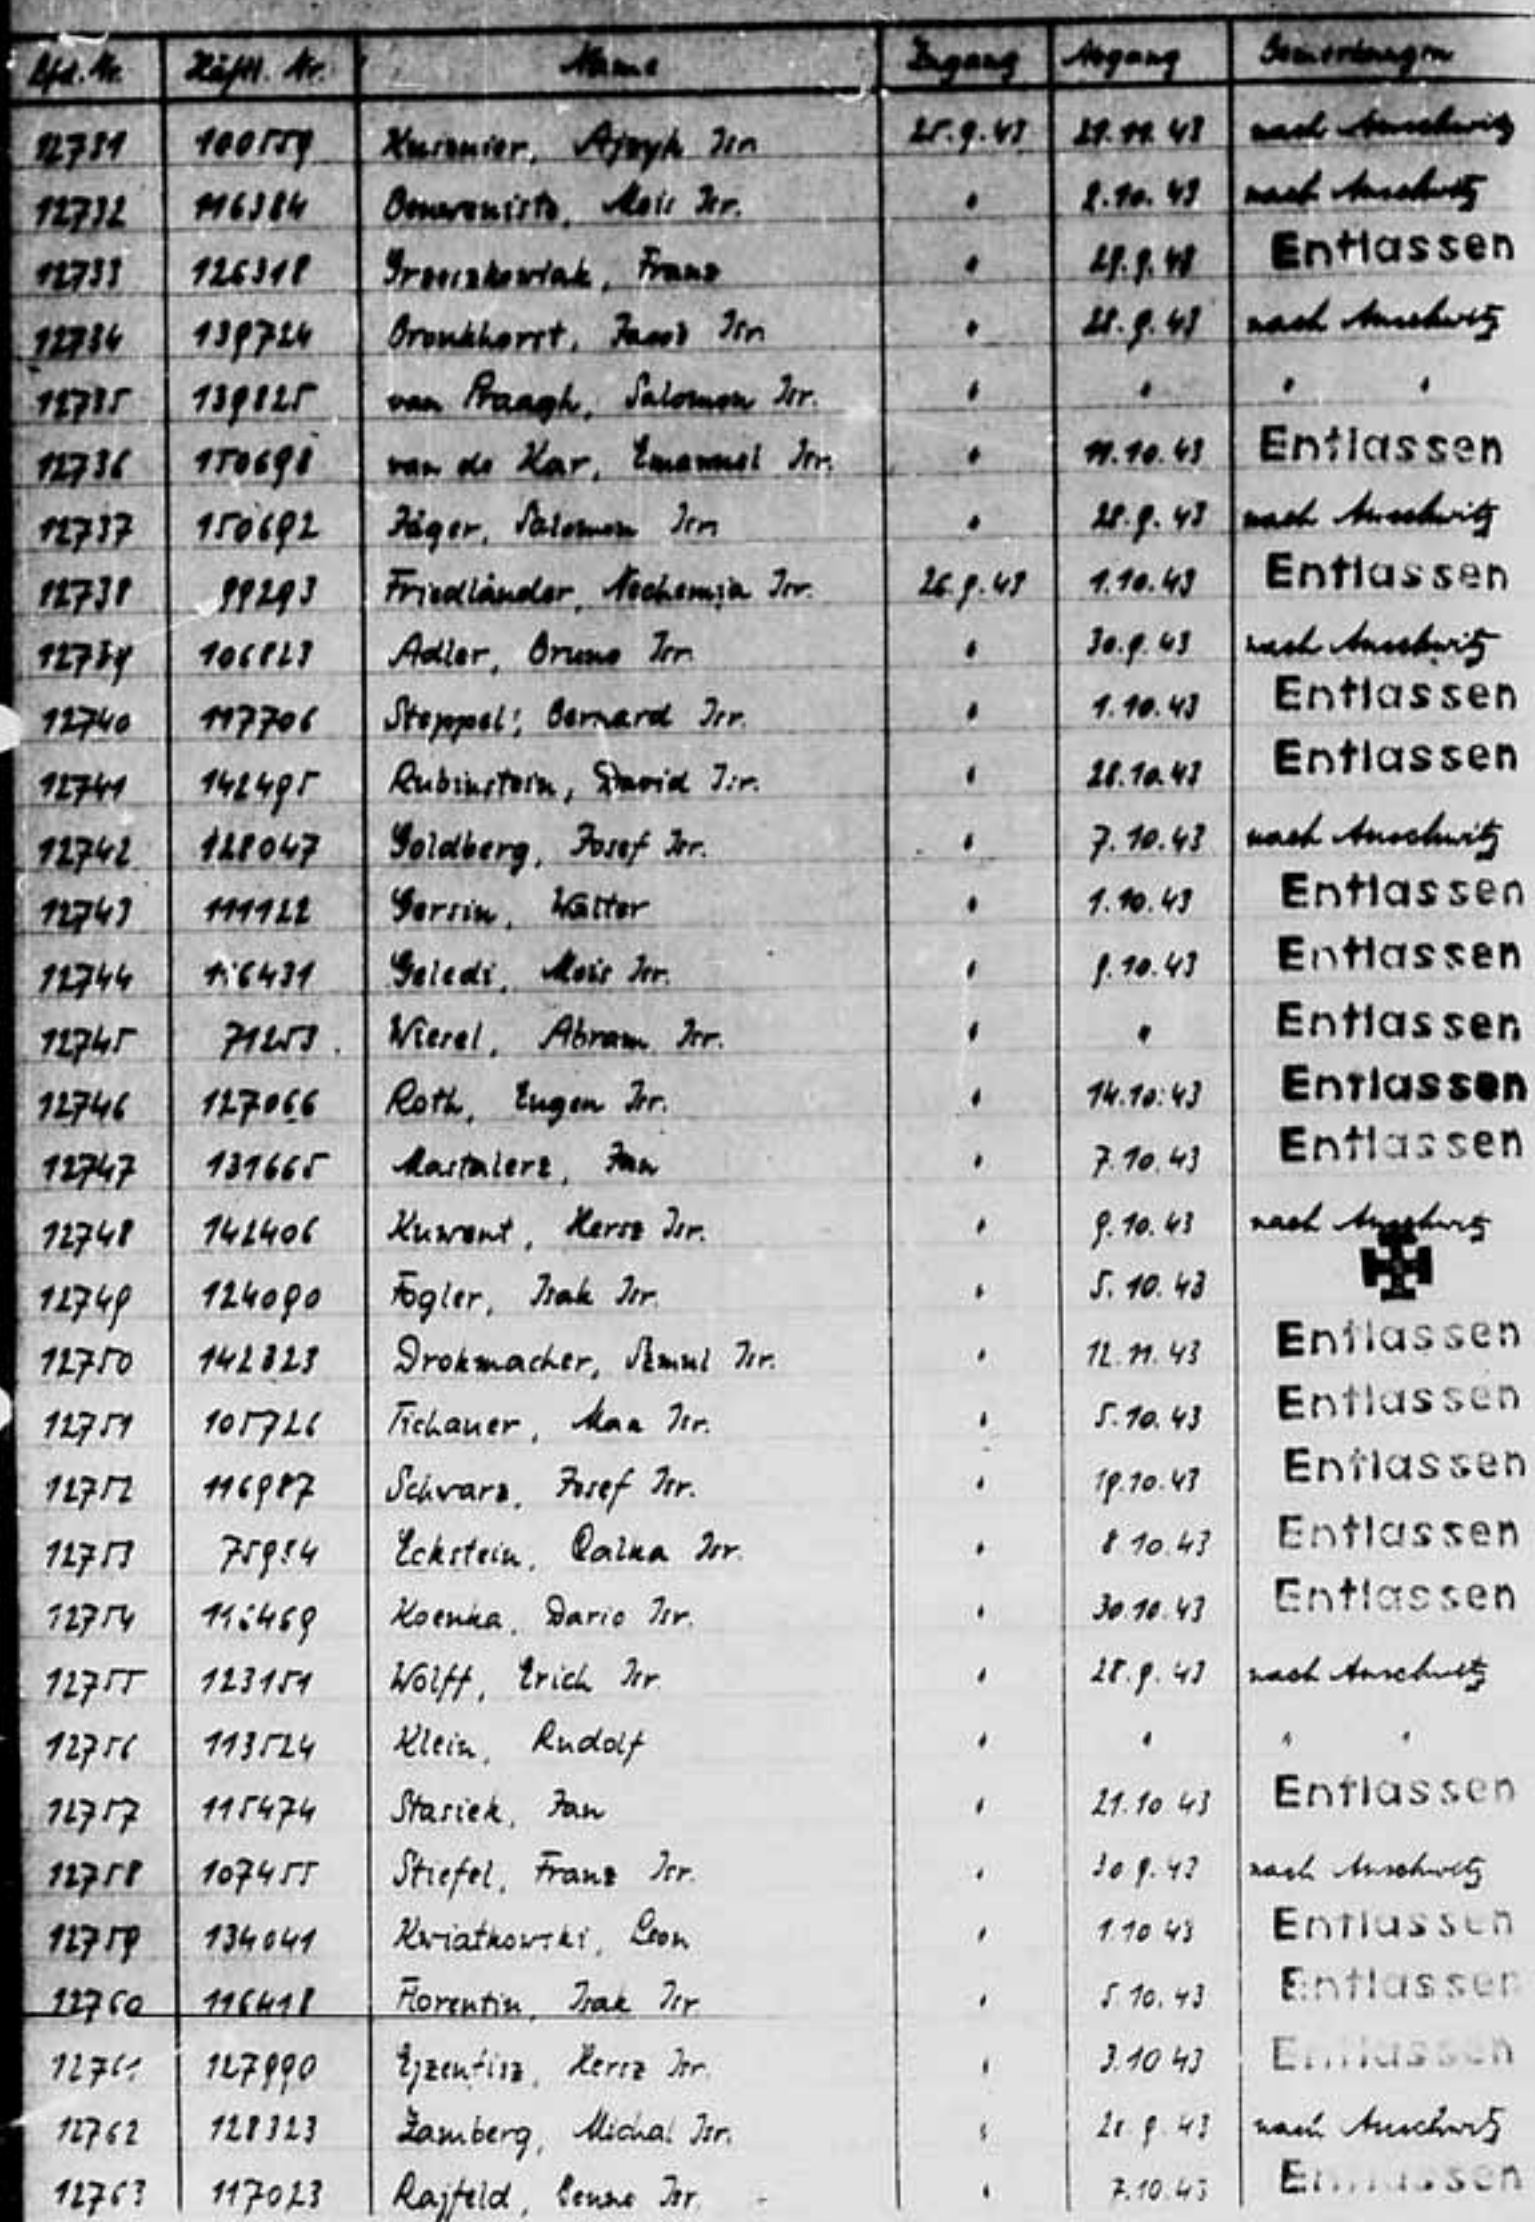 Lfd. Nr. Häftl. Nr. Name Zugang Abgang Bemerkungen
12731 100559 Kusznier, Ajzyk Isr. 25.9.43 29.11.43 nach Auschwitz
12732 116384 Benveniste, Mois Isr. " 2.10.43 nach Auschwitz
12733 126318 Franz " 28.9.43 Entlassen
12734 139724 Bronkhorst, Jacob Isr. " 28.9.43 nach Auschwitz
12735 139825 van Praagh, Salomon Isr. " " " "
12736 150698 van de Kar, Emanuel Isr. " 11.10.43 Entlassen
12737 150692 Jäger, Salomon Isr. " 28.9.43 nach Auschwitz
12738 99293 Friedländer, Nechemja Isr. 26.9.43 1.10.43 Entlassen
12739 106823 Adler, Bruno Isr. " 30.9.43 nach Auschwitz
12740 117706 Steppel, Bernard Isr. " 1.10.43 Entlassen
12741 142495 Rubinstein, David Isr. " 28.10.43 Entlassen
12742 128047 Goldberg, Josef Isr. " 7.10.43 nach Auschwitz
12743 111122 Gerrin, Walter " 1.10.43 Entlassen
12744 116431 Geledi, Mois Isr. " 9.10.43 Entlassen
12745 71253 Wiesel, Abram Isr. " " Entlassen
12746 127066 Roth, Eugen Isr. " 14.10.43 Entlassen
12747 131665 Mastalerz, Jan " 7.10.43 Entlassen
12748 142406 Kuwent, Hersz Isr. " 9.10.43 nach Auschwitz
12749 124090 Fogler, Isak Isr. " 5.10.43
12750 142323 Drokmacher, Szmul Isr. " 12.11.43 Entlassen
12751 105726 Tichauer, Max Isr. " 5.10.43 Entlassen
12752 116987 Schwarz, Josef Isr. " 19.10.43 Entlassen
12753 75954 Eckstein, Isr. " 8.10.43 Entlassen
12754 116469 Koenka, Dario Isr. " 30.10.43 Entlassen
12755 123151 Wolff, Erich Isr. " 28.9.43 nach Auschwitz
12756 113524 Klein, Rudolf " " " "
12757 115474 Stasiek, Jan " 21.10.43 Entlassen
12758 107455 Stiefel, Franz Isr. " 30.9.43 nach Auschwitz
12759 134041 Kwiatkowski, Leon " 1.10.43 Entlassen
12760 116418 Florentin, Isak Isr. " 5.10.43 Entlassen
12761 127990 Ejzentisz, Hersz Isr. " 3.10.43 Entlassen
12762 128323 Zamberg, Michal Isr. " 28.9.43 nach Auschwitz
12763 117023 Rajfeld, Benno Isr. " 7.10.43 Entlassen